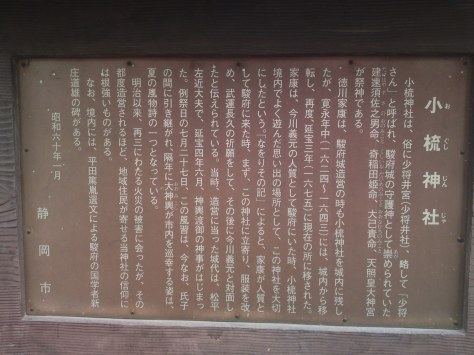 小梳神社
おぐしじんじゃ
小梳神社は、俗に少将井宮(少将井社)、略して「少将
さん」と呼ばれ、駿府城の守護神として崇められていた
建速須佐之男命、奇稲田姫命、大己貴命、天照皇大神宮
が祭神である。
徳川家康は、駿府城造営の時も小梳神社を城内に残し
たが、寛永年中(一六二四〜一六四三)には、城内から移
転し、再度、延宝三年(一六七五)に現在の所に移された。
家康は、今川義元の人質として駿府にいた時、小梳神社
境内でよく遊んだ思い出の場所として、この神社を大切
にしたという。「なを里その記」によると、家康が人質と
して駿府に来た時、まず、この神社に立寄り、服装を改
め、武運長久の祈願をして、その後に今川義元と対面し
たと伝えられている。当時、造営に当った城代は、松平
左近大夫で、延宝四年六月、神輿渡御の神事がはじまっ
た。例祭日の七月二十七日、この風習は、今なお、氏子
の間に引き継がれ、隔年に大神輿が市内を巡幸する姿は、
夏の風物詩の一つとなっている。
明治以来、再三にわたる火災の被害に会ったが、その
都度造営されるほど、地域住民が寄せる当神社の信仰に
は根強いものがある。
なお、境内には、平田胤選文による駿府の国学者新
庄道雄の碑がある。
昭和六十年一月
静岡市